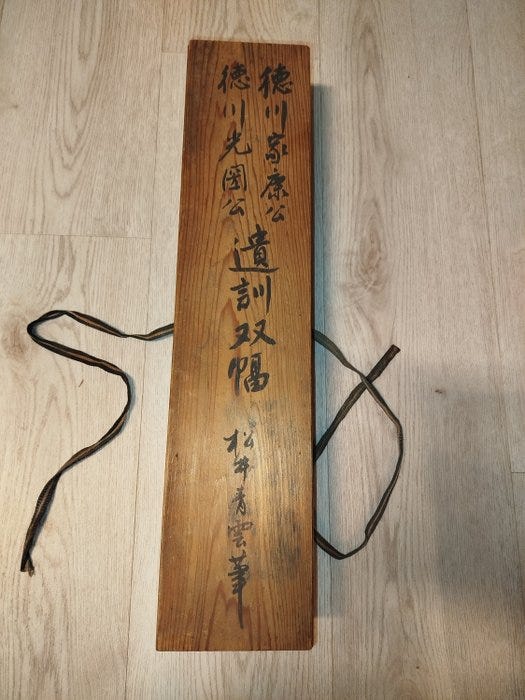 徳川家康公
徳川光圀公
遺訓双幅
松井青雲筆